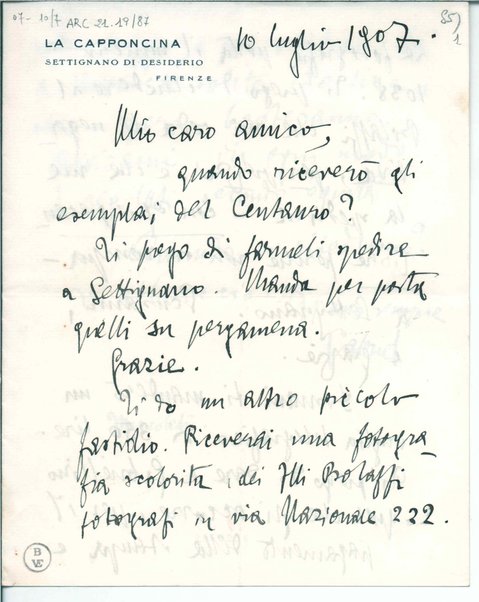 07-10/7 ARC 21.19/87
LA CAPPONCINA
SETTIGNANO DI DESIDERIO
FIRENZE
10 luglio 1907.
Mio caro amico,
quando riceverò gli
esemplari del Centauro?
Ti prego di farmeli spedire
a Settignano. Manda per posta
quelli su pergamena.
Grazie.
Ti do un altro piccolo
fastidio. Riceverai una fotogra
fia scolorita, dei
fotografi in via Nazionale 222.
BVE